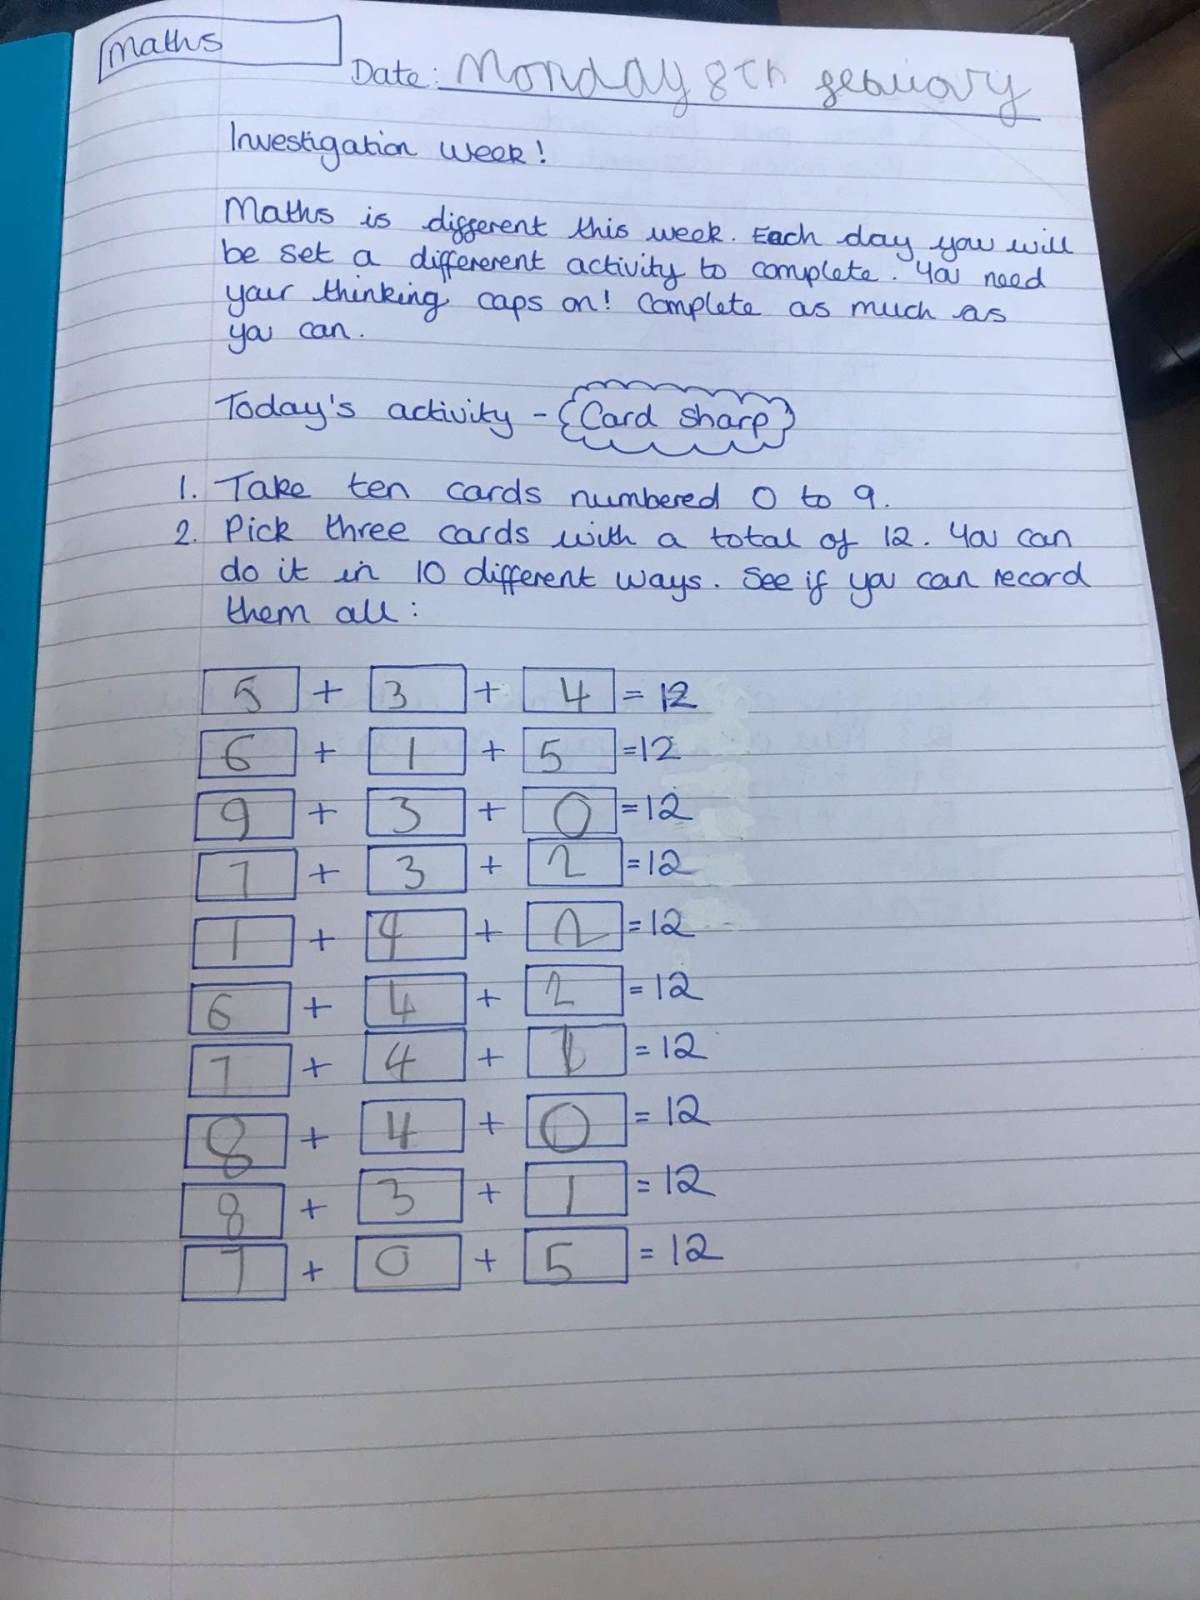 Maths
Date: Monday 8th february
Investigation week!
Maths is different this week. Each day you will
be set a differerent activity to complete. You need
your thinking caps on! Complete as much as
you can.
Today's activity - Card Sharp
1. Take ten cards numbered 0 to 9.
2. Pick three cards with a total of 12. You can
do it in 10 different ways. See if you can record
them all:
5 + 3 + 4 = 12
6 + 1 + 5 = 12
9 + 3 + 0 = 12
7 + 3 + 2 = 12
1 + 9 + 2 = 12
6 + 4 + 2 = 12
7 + 4 + 1 = 12
8 + 4 + 0 = 12
8 + 3 + 1 = 12
7 + 0 + 5 = 12